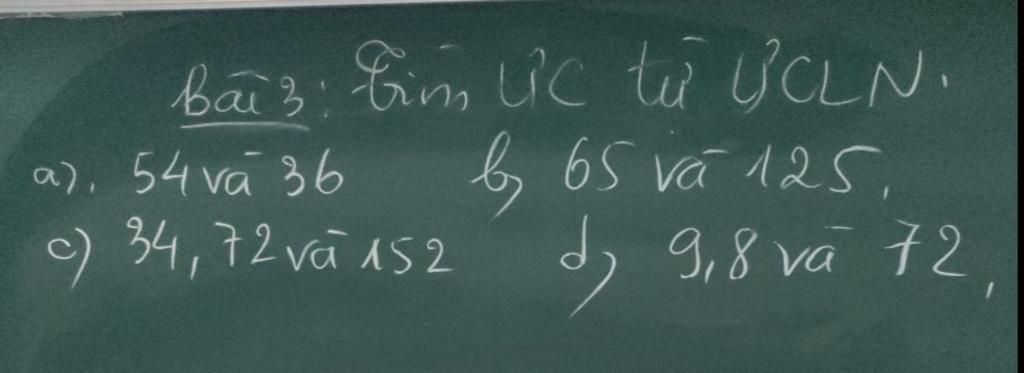 Bài 3: Tìm ƯC từ ƯCLN.
a), 54 và 36 b, 65 và 125,
c) 34, 72 và 152 d, 9, 8 và 72,